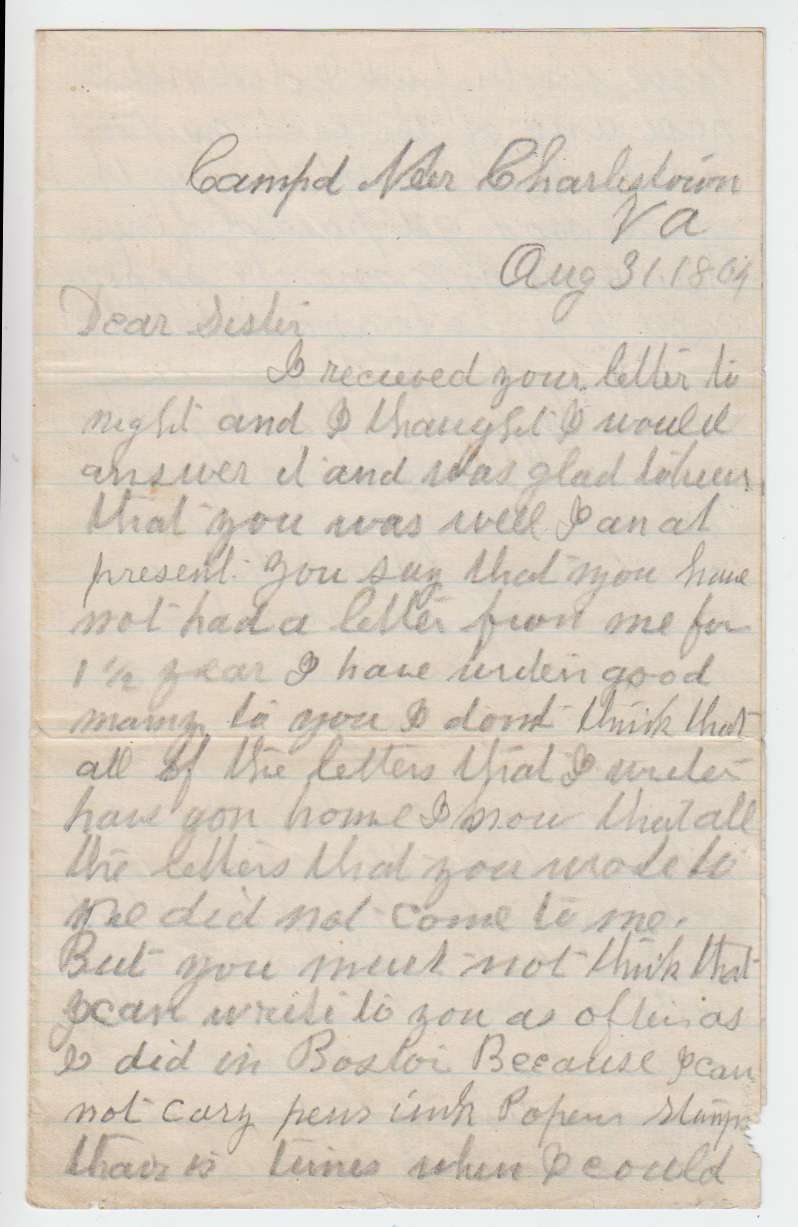 Campd Neer Charlestown
Va
Aug 31. 1864
Dear Sister
I recieved your letter to
night and I thaught I would
answer it and was glad to hear
that you was well I am at
present. You say that you have
not had a letter from me for
1 1/2 year I have writen good
many to you I dont think that
all of the letters that I writen
have gon home I now that all
the letters that you wrote to
me did not come to me.
But you must not think that
I can write to you as often as
I did in Boston Because I can
not cary pens ink Paper stamps
thair is times when I could